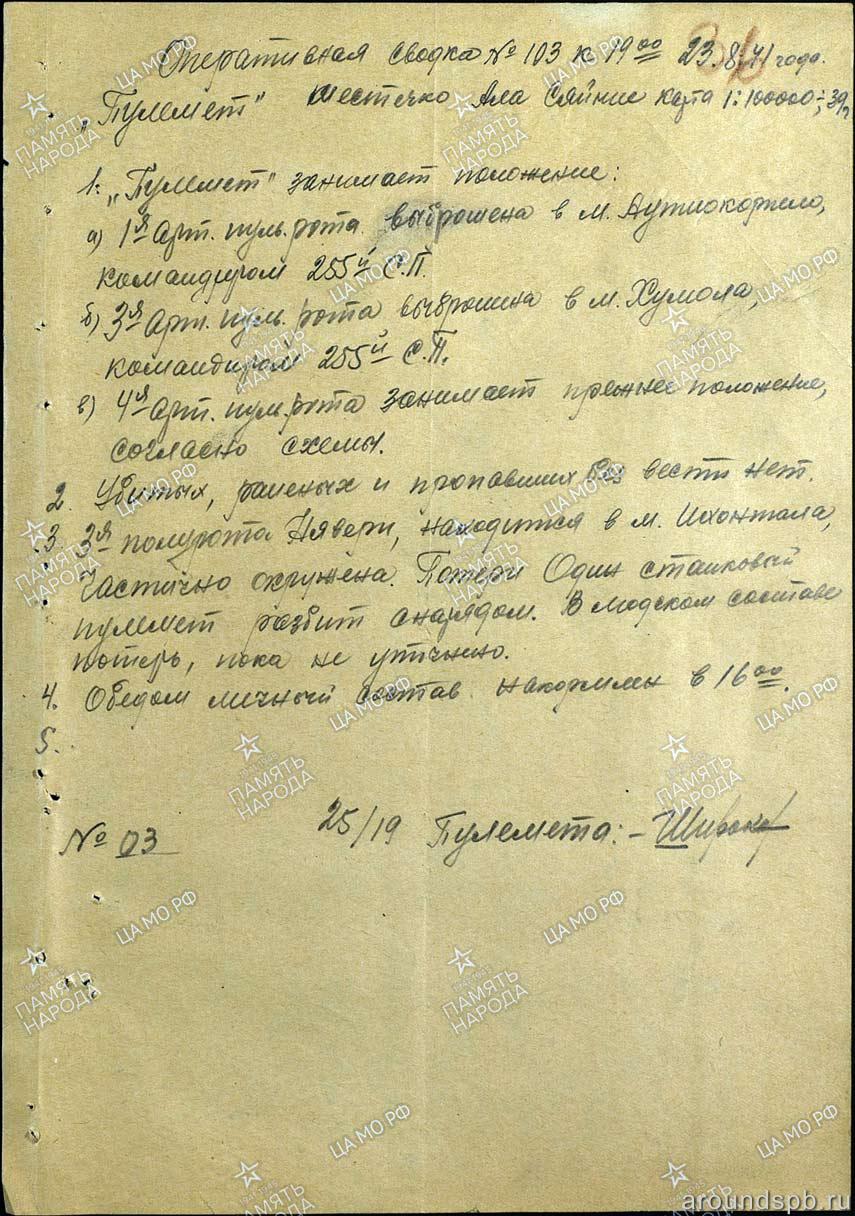 Оперативная сводка № 103 к 19⁰⁰ 23.8.41 года.
„Пулемет" местечко Ала Сяйние карта 1:100000
1. „Пулемет" занимает положение:
а) 1я Арт. пуль. рота выброшена в м.
командиром 255й С.П.
б) 3я Арт. пуль. рота выброшена в м. Хумола,
командиром 255й С.П.
в) 4я Арт. пуль. рота занимает прежнее положение,
согласно схемы.
2. Убитых, раненых и пропавших без вести нет.
3. 3я полурота Нявери, находится в м. Ихонтала,
частично окружена. Потери Один станковый
пулемет разбит снарядом. В людском составе
потерь, пока не уточнено.
4. Обедом личный состав накормлен в 16⁰⁰.
5.
№ 03 25/19 Пулемета: –
ПАМЯТЬ НАРОДА
ЦА МО РФ
aroundspb.ru